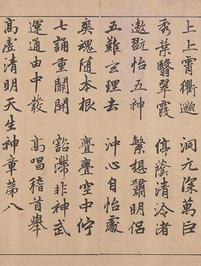 上上霄衢邈　洞元深萬巨
秀葉翳翠霞　停蔭清泠渚
遨翫怡五神　繁想嘯明侶
五難玄理去　沖心自怡處
爽魂隨本根　亹亹空中佇
七誦重關開　豁滯非神武
運通由中發　高唱稽首舉
高虛清明天生神章第八